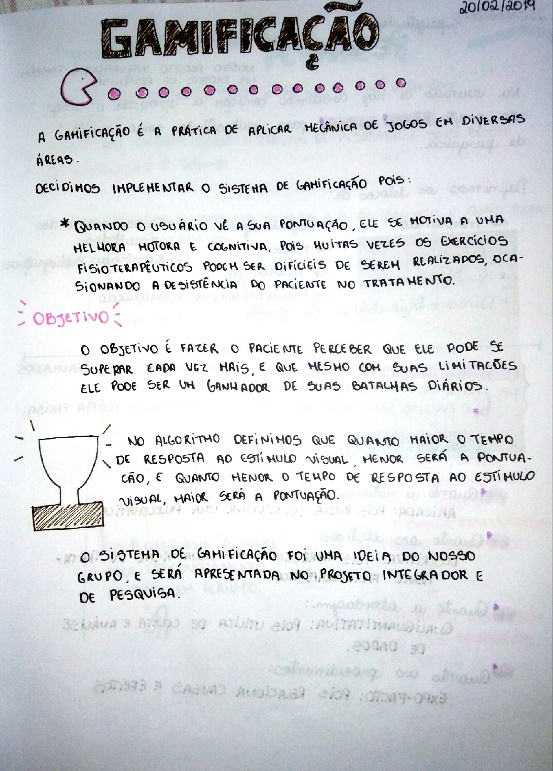 20/02/2019
GAMIFICAÇÃO
A GAMIFICAÇÃO É A PRÁTICA DE APLICAR MECÂNICA DE JOGOS EM DIVERSAS
ÁREAS.
DECIDIMOS IMPLEMENTAR O SISTEMA DE GAMIFICAÇÃO POIS:
* QUANDO O USUÁRIO VÊ A SUA PONTUAÇÃO, ELE SE MOTIVA A UMA
MELHORA MOTORA E COGNITIVA, POIS MUITAS VEZES OS EXERCÍCIOS
FISIOTERAPÊUTICOS PODEM SER DIFÍCIEIS DE SEREM REALIZADOS, OCA-
SIONANDO A DESISTÊNCIA DO PACIENTE NO TRATAMENTO.
OBJETIVO
O OBJETIVO É FAZER O PACIENTE PERCEBER QUE ELE PODE SE
SUPERAR CADA VEZ MAIS, E QUE MESMO COM SUAS LIMITAÇÕES
ELE PODE SER UM GANHADOR DE SUAS BATALHAS DIÁRIOS.
NO ALGORITMO DEFINIMOS QUE QUANTO MAIOR O TEMPO
DE RESPOSTA AO ESTÍMULO VISUAL, MENOR SERÁ A PONTUA-
ÇÃO, E QUANTO MENOR O TEMPO DE RESPOSTA AO ESTÍMULO
VISUAL, MAIOR SERÁ A PONTUAÇÃO.
O SISTEMA DE GAMIFICAÇÃO FOI UMA IDEIA DO NOSSO
GRUPO, E SERÁ APRESENTADA NO PROJETO INTEGRADOR E
DE PESQUISA.